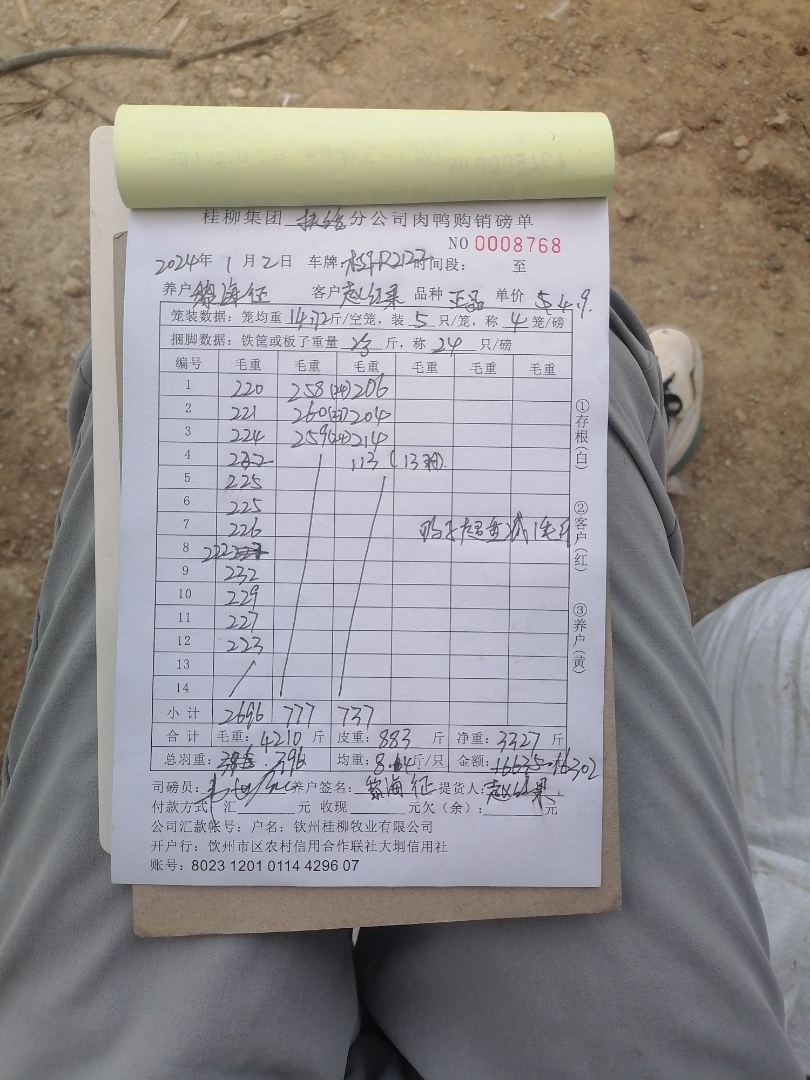 桂柳集团 分公司肉鸭购销磅单
NO 0008768
2024年 1月2日 车牌: 时间段: 至
养户 黎海征 客户 赵红果 品种 正品 单价 4.9.
笼装数据: 笼均重 14.72斤/空笼, 装 5 只/笼, 称 4 笼/磅
捆脚数据: 铁筐或板子重量 斤, 称 24 只/磅
编号 毛重 毛重 毛重 毛重 毛重 毛重
1 220 258(24) 206
2 221 260 204
3 224 259(24) 214
4 222 113 (13只).
5 225
6 225
7 226
8 222
9 232
10 229
11 227
12 223
13
14
小计 2696 777 737
合计 毛重: 4210 斤 皮重: 883 斤 净重: 3327 斤
总羽重: 396 均重: 8.4斤/只 金额: 16302
司磅员: 养户签名: 黎海征 提货人: 赵红果
付款方式: 汇 元 收现 元欠(余): 元
公司汇款帐号: 户名: 钦州桂柳牧业有限公司
开户行: 钦州市区农村信用合作联社大垌信用社
账号: 8023 1201 0114 4296 07
①存根(白)
②客户(红)
③养户(黄)